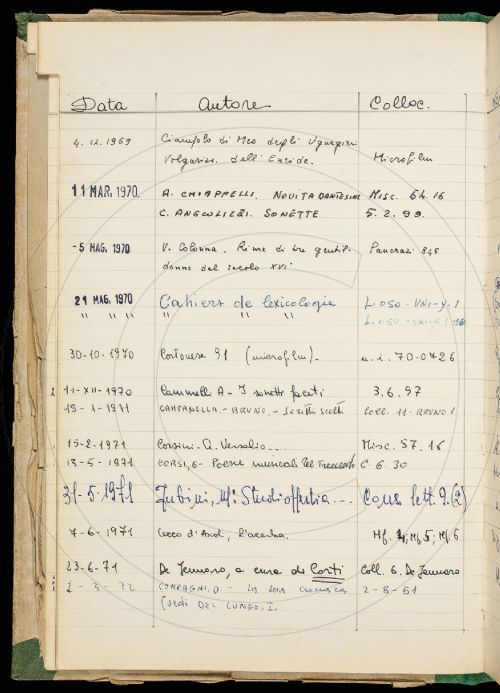 Data Autore Colloc.
4.12.1969 Ciampolo di Meo degli Ugurgieri
Volgarizz. dell'Eneide. Microfilm
11 MAR. 1970 A. CHIAPPELLI. NOVITA DANTESCHE Misc. 54.16
C. ANGIOLIERI. SONETTI 5.2.99.
-5 MAG. 1970 V. Colonna. Rime di tre gentil.
donne del secolo XVI Pancrazi 848
21 MAG. 1970 Cahiers de lexicologie L.050-UNI-y.1
" " " " " L.050-UNI-y.1
30-10-1970 Cortonese 91 (microfilm) n.i. 70-0426
11-XII-1970 Cammelli A- I sonetti faceti 3.6.97
19-1-1971 CAMPANELLA-BRUNO.- Scritti scelti Coll. 11-BRUNO 1
15-2-1971 Corsini. Q. Versalio... Misc. 57.16
13-5-1971 CORSI, G- Poesie musicali del Trecento C.6.30
31-5-1971 Fubini, M: Studi Cons. lett. 9.(2)
7-6-1971 Cecco d'Ascoli, L'acerba. Mf. 4; Mf 5; Mf. 6
23-6-71 De Jennaro, a cura di Corti Coll. 6. De Jennaro
2-3-72 COMPAGNI, D.- La sua cronica 2-8-61
(sedi DEL LUNGO, I.